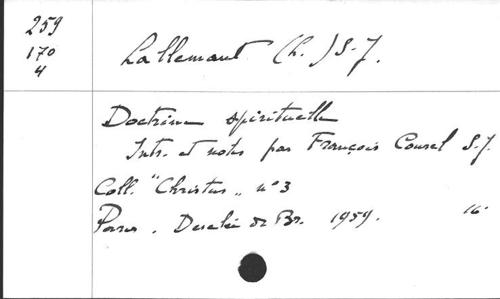 259
170
4
Lallemant (L.) S.J.
Doctrine spirituelle
Intr. et notes par François Courel S.J.
Coll. "Christus" n° 3
Paris. Desclée de Br. 1959. 16°